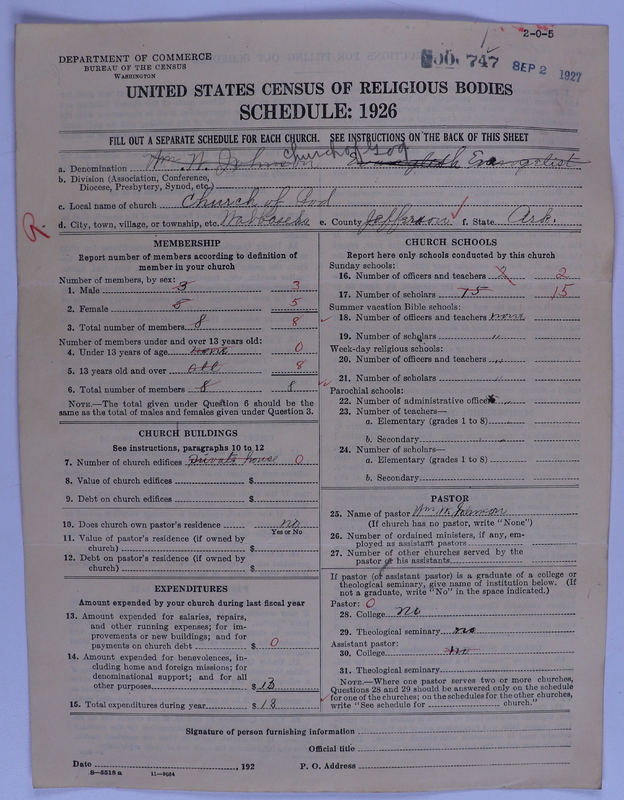 2-0-5
DEPARTMENT OF COMMERCE
BUREAU OF THE CENSUS
WASHINGTON
No. 747 SEP 2 1927
UNITED STATES CENSUS OF RELIGIOUS BODIES
SCHEDULE: 1926
FILL OUT A SEPARATE SCHEDULE FOR EACH CHURCH. SEE INSTRUCTIONS ON THE BACK OF THIS SHEET
Church of God
a. Denomination Wm. W. Evangelist
b. Division (Association, Conference,
Diocese, Presbytery, Synod, etc.)
c. Local name of church Church of God
d. City, town, village, or township, etc. Wabbaseka e. County Jefferson f. State Ark.
MEMBERSHIP
Report number of members according to definition of
member in your church
Number of members, by sex:
1. Male 3 3
2. Female 5 5
3. Total number of members 8 8
Number of members under and over 13 years old:
4. Under 13 years of age none 0
5. 13 years old and over all 8
6. Total number of members 8 8
NOTE.—The total given under Question 6 should be
same as the total of males and females given under Question 3.
CHURCH BUILDINGS
See instructions, paragraphs 10 to 12
7. Number of church edifices private house 0
8. Value of church edifices $
9. Debt on church edifices $
10. Does church own pastor's residence no
Yes or No
11. Value of pastor's residence (if owned by
church) $
12. Debt on pastor's residence (if owned by
church) $
EXPENDITURES
Amount expended by your church during last fiscal year
13. Amount expended for salaries, repairs,
and other running expenses; for im-
provements or new buildings; and for
payments on church debt $ 0
14. Amount expended for benevolences, in-
cluding home and foreign missions; for
denominational support; and for all
other purposes $ 13
15. Total expenditures during year $ 13
CHURCH SCHOOLS
Report here only schools conducted by this church
Sunday schools:
16. Number of officers and teachers 2 2
17. Number of scholars 15 15
Summer vacation Bible schools:
18. Number of officers and teachers none
19. Number of scholars "
Week-day religious schools:
20. Number of officers and teachers "
21. Number of scholars "
Parochial schools:
22. Number of administrative officers "
23. Number of teachers—
a. Elementary (grades 1 to 8)
b. Secondary
24. Number of scholars—
a. Elementary (grades 1 to 8)
b. Secondary
PASTOR
25. Name of pastor Wm. W.
(If church has no pastor, write "None")
26. Number of ordained ministers, if any, em-
ployed as assistant pastors
27. Number of other churches served by the
pastor or his assistants
If pastor (or assistant pastor) is a graduate of a college or
theological seminary, give name of institution below. (If
not a graduate, write "No" in the space indicated.)
Pastor: 0
28. College no
29. Theological seminary no
Assistant pastor:
30. College no
31. Theological seminary
NOTE.—Where one pastor serves two or more churches,
Questions 28 and 29 should be answered only on the schedule
for one of the churches; on the schedules for the other churches,
write "See schedule for church."
Signature of person furnishing information
Official title
Date , 192 P. O. Address
8—5518a 11—9064